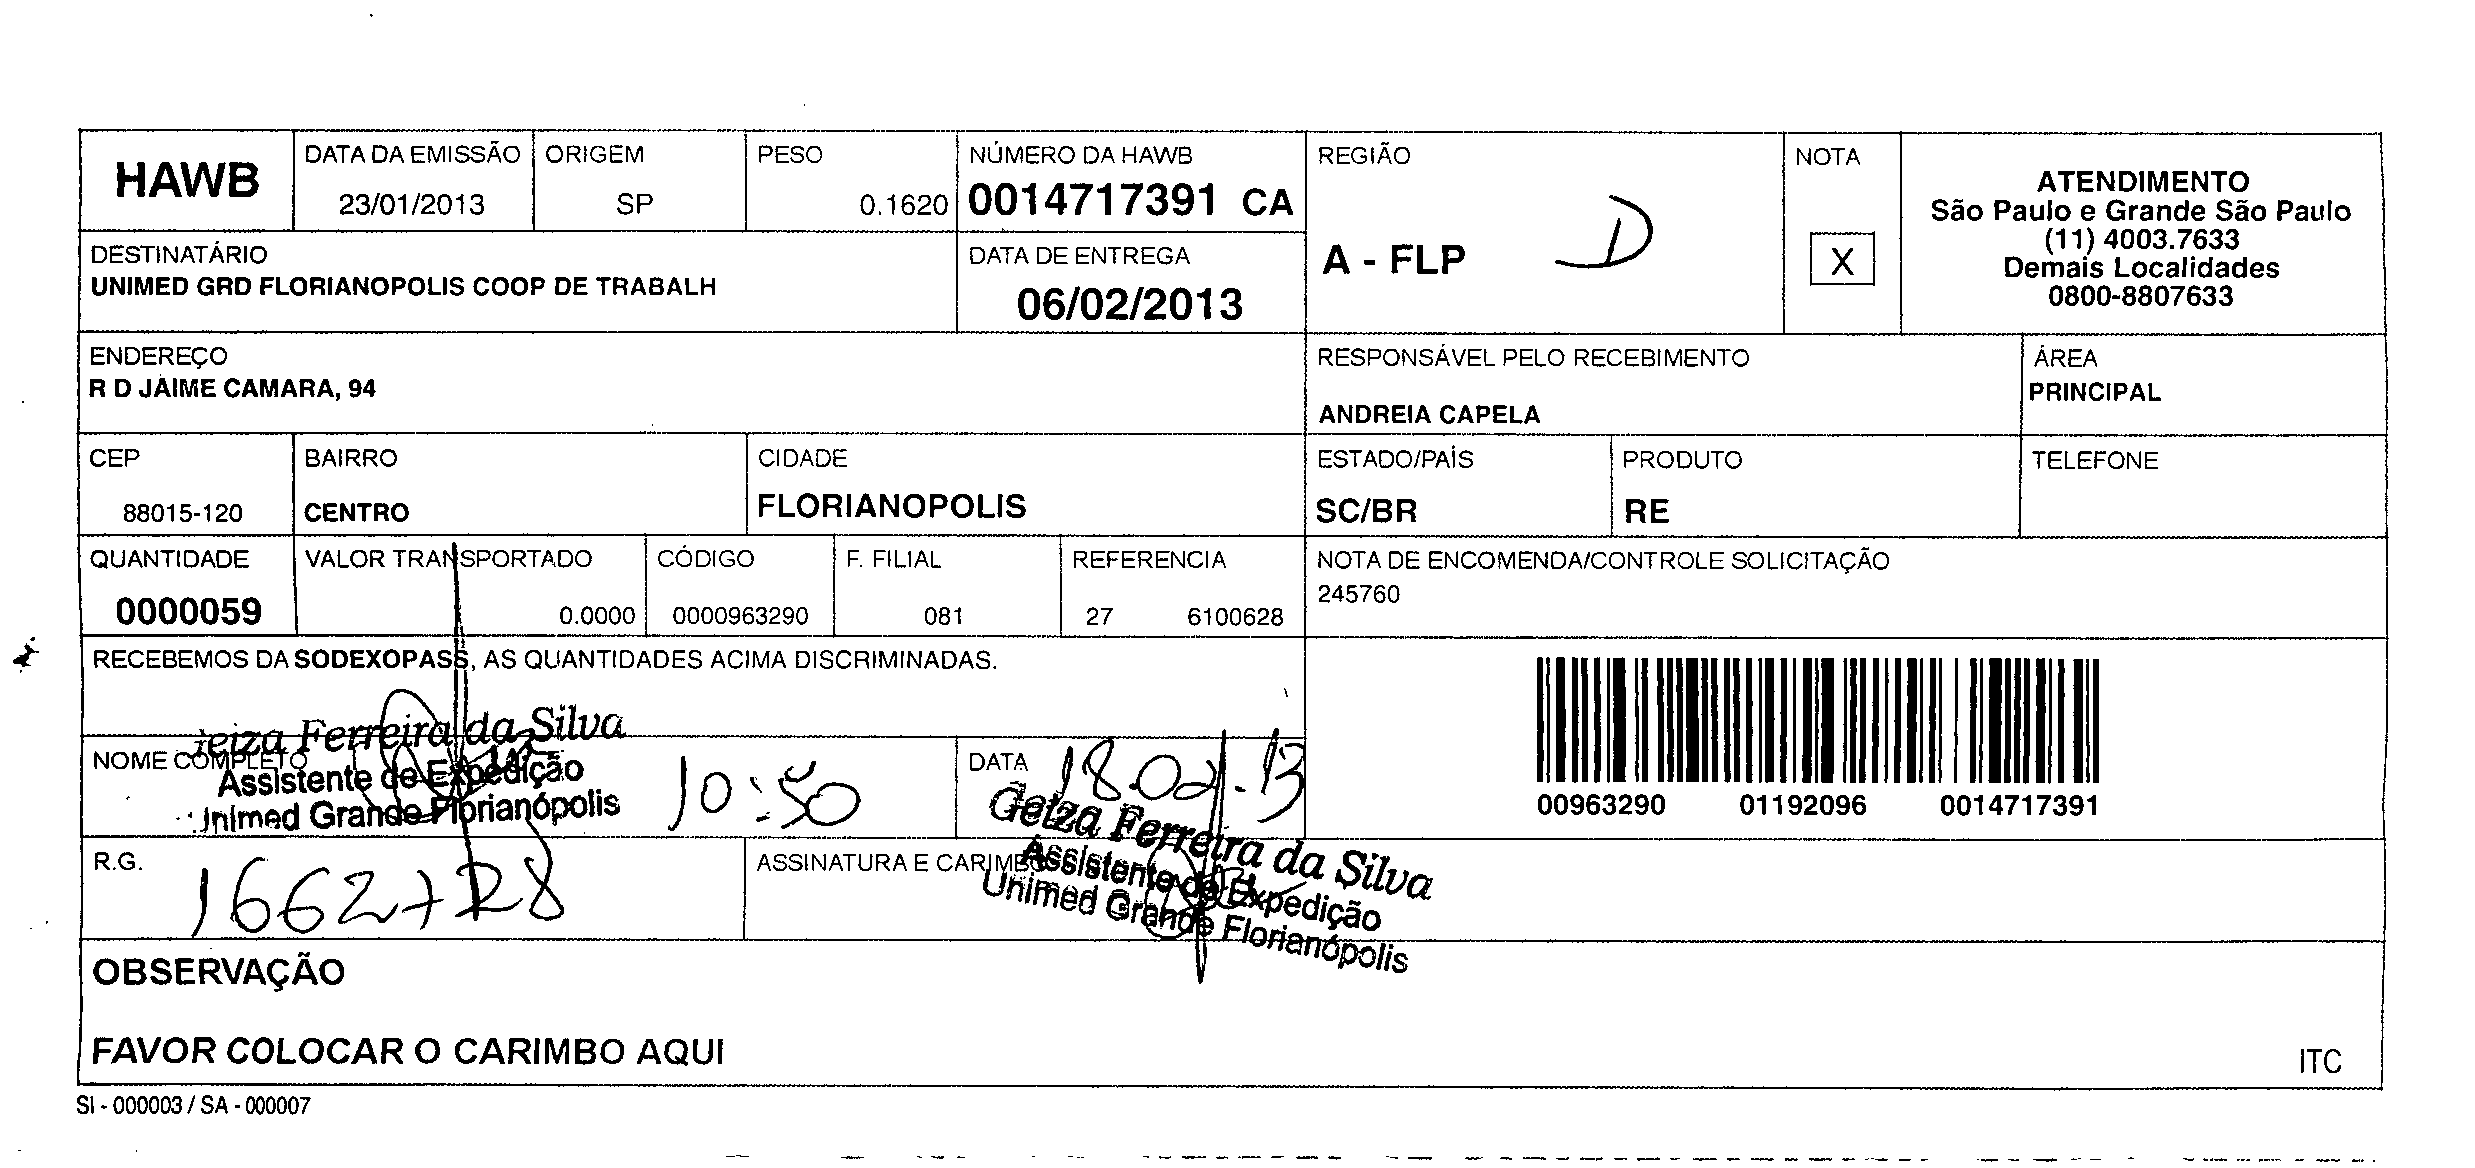 HAWB
DATA DA EMISSÃO
23/01/2013
ORIGEM
SP
PESO
0.1620
NÚMERO DA HAWB
0014717391 CA
REGIÃO
A - FLP
D
NOTA
X
ATENDIMENTO
São Paulo e Grande São Paulo
(11) 4003.7633
Demais Localidades
0800-8807633
DESTINATÁRIO
UNIMED GRD FLORIANOPOLIS COOP DE TRABALH
DATA DE ENTREGA
06/02/2013
ENDEREÇO
R D JAIME CAMARA, 94
RESPONSÁVEL PELO RECEBIMENTO
ANDREIA CAPELA
ÁREA
PRINCIPAL
CEP
88015-120
BAIRRO
CENTRO
CIDADE
FLORIANOPOLIS
ESTADO/PAÍS
SC/BR
PRODUTO
RE
TELEFONE
QUANTIDADE
0000059
VALOR TRANSPORTADO
0.0000
CÓDIGO
0000963290
F. FILIAL
081
REFERENCIA
27 6100628
NOTA DE ENCOMENDA/CONTROLE SOLICITAÇÃO
245760
RECEBEMOS DA SODEXOPASS, AS QUANTIDADES ACIMA DISCRIMINADAS.
00963290 01192096 0014717391
NOME COMPLETO
Geiza Ferreira da Silva
Assistente de Expedição
Unimed Grande Florianópolis
10:50
DATA
18.02.13
R.G.
1662728
ASSINATURA E CARIMBO
Geiza Ferreira da Silva
Assistente de Expedição
Unimed Grande Florianópolis
OBSERVAÇÃO
FAVOR COLOCAR O CARIMBO AQUI
ITC
SI - 000003 / SA - 000007